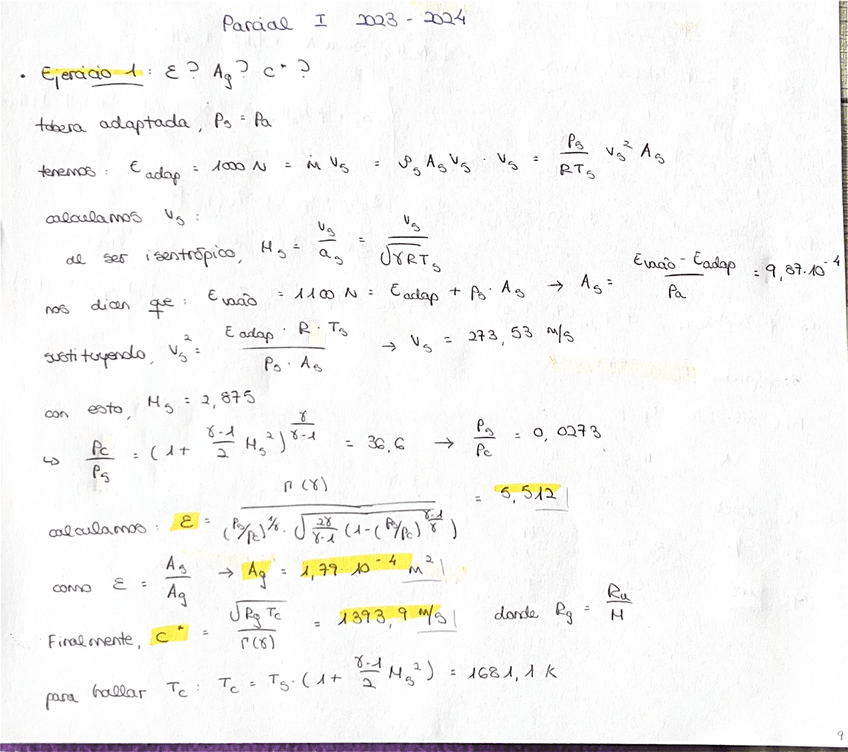 Parcial I 2023 - 2024
• Ejercicio 1: ε? Ag? c*?
tobera adaptada, Ps = Pa
tenemos: Eadap = 1000 N = ṁ Vs = ρs As Vs · Vs = Ps/RTs Vs² As
calculamos Vs:
al ser isentrópico, Ms = Vs/as = Vs/√γRTs
nos dicen que: Evacío = 1100 N = Eadap + Ps · As → As = Evacío - Eadap/Pa = 9,87·10⁻⁴
sustituyendo, Vs² = Eadap · R · Ts/Ps · As → Vs = 273,53 m/s
con esto, Ms = 2,875
↳ Pc/Ps = (1 + γ-1/2 Ms²)^γ/γ-1 = 36,6 → Ps/Pc = 0,0273
calculamos: ε = Γ(γ)/(Ps/Pc)^1/γ · √2γ/γ-1 (1-(Ps/Pc)^γ-1/γ) = 5,512
como ε = As/Ag → Ag = 1,79·10⁻⁴ m²
Finalmente, c* = √Rg Tc/Γ(γ) = 1393,9 m/s donde Rg = Ru/M
para hallar Tc: Tc = Ts·(1 + γ-1/2 Ms²) = 1681,1 K
9